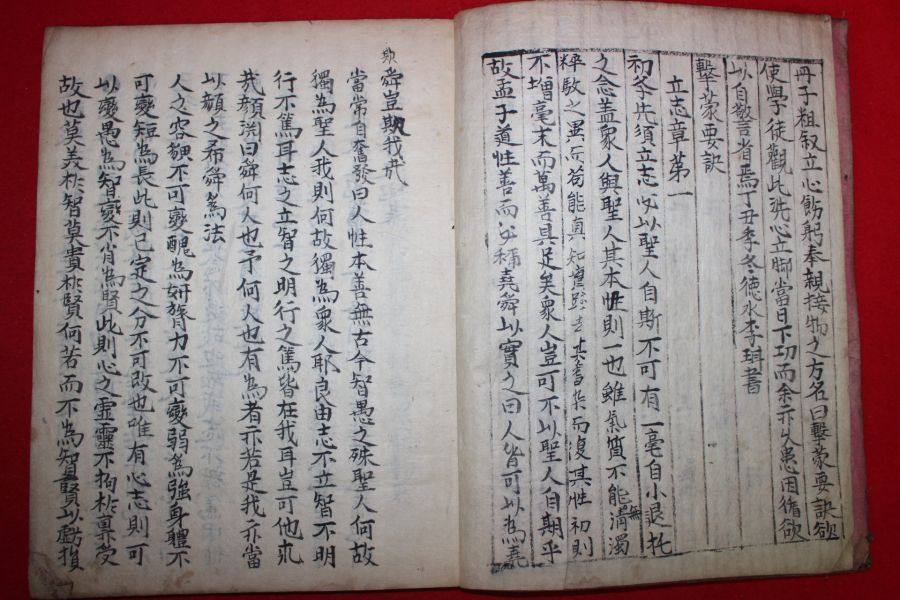 冊子粗叙立心飭躬奉親接物之方名曰擊蒙要訣欲
使學徒觀此洗心立脚當日下功而余亦久患因循欲
以自警省焉丁丑季冬德水李珥書
擊蒙要訣
立志章第一
初斈先須立志必以聖人自斯不可有一毫自小退托
之念盖衆人與聖人其本性則一也雖氣質不能無清濁
粹駁之異而苟能真知實踐去其舊染而復其性初則
不增毫末而萬善具足矣衆人豈可不以聖人自期乎
故孟子道性善而必稱堯舜以實之曰人皆可以為堯
舜豈期我哉
當常自奮發曰人性本善無古今智愚之殊聖人何故
獨為聖人我則何故獨為衆人耶良由志不立智不明
行不篤耳志之立智之明行之篤皆在我耳豈可他求
哉顔渕曰舜何人也予何人也有為者亦若是我亦當
以顔之希舜為法
人之容貌不可變醜為姸膂力不可變弱為強身軆不
可變短為長此則已定之分不可改也唯有心志則可
以變愚為智變不肖為賢此則心之虛靈不拘於禀受
故也莫美於智莫貴於賢何若而不為智賢以虧損